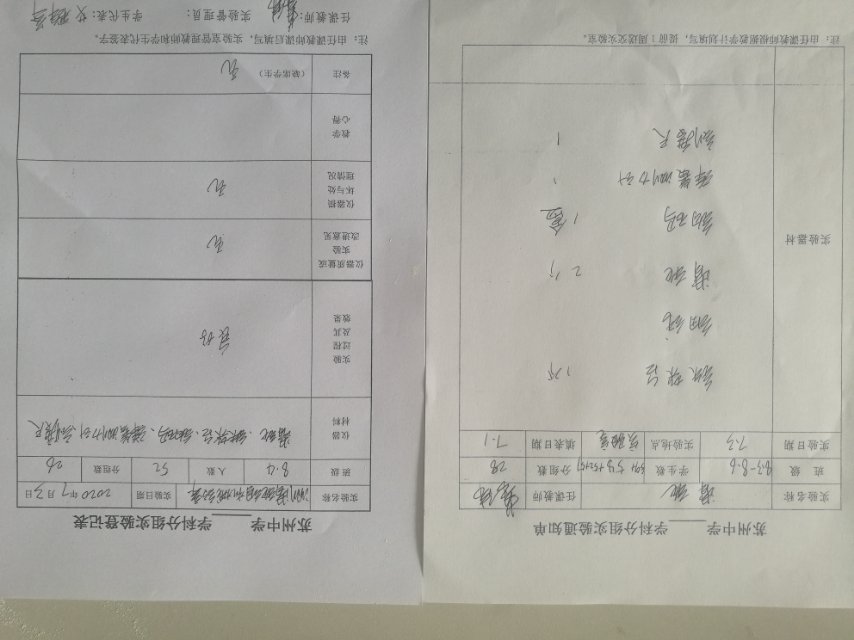 苏州中学______学科分组实验通知单
实验名称 滑轮 任课教师
班 级 8.3-8.6 学生数 分组数 28
实验日期 7.3 实验地点 实验室 填表日期 7.1
实验器材
铁架台 1个
细绳
滑轮 2个
钩码 1盒
弹簧测力计 1
刻度尺 1
注：由任课教师根据教学计划填写，提前1周送交实验室。
苏州中学______学科分组实验登记表
实验名称 测滑轮组机械效率 实验日期 2020年7月3日
班级 8.4 人数 52 分组数 26
仪器材料 滑轮、铁架台、钩码、弹簧测力计 刻度尺
实验过程及其效果 良好
仪器质量或实验改进意见 无
仪器损坏与处理情况 无
教学心得
备注 （缺席学生） 无
注：由任课教师课后填写，实验室管理教师和学生代表签字。
任课教师： 实验管理员： 学生代表：